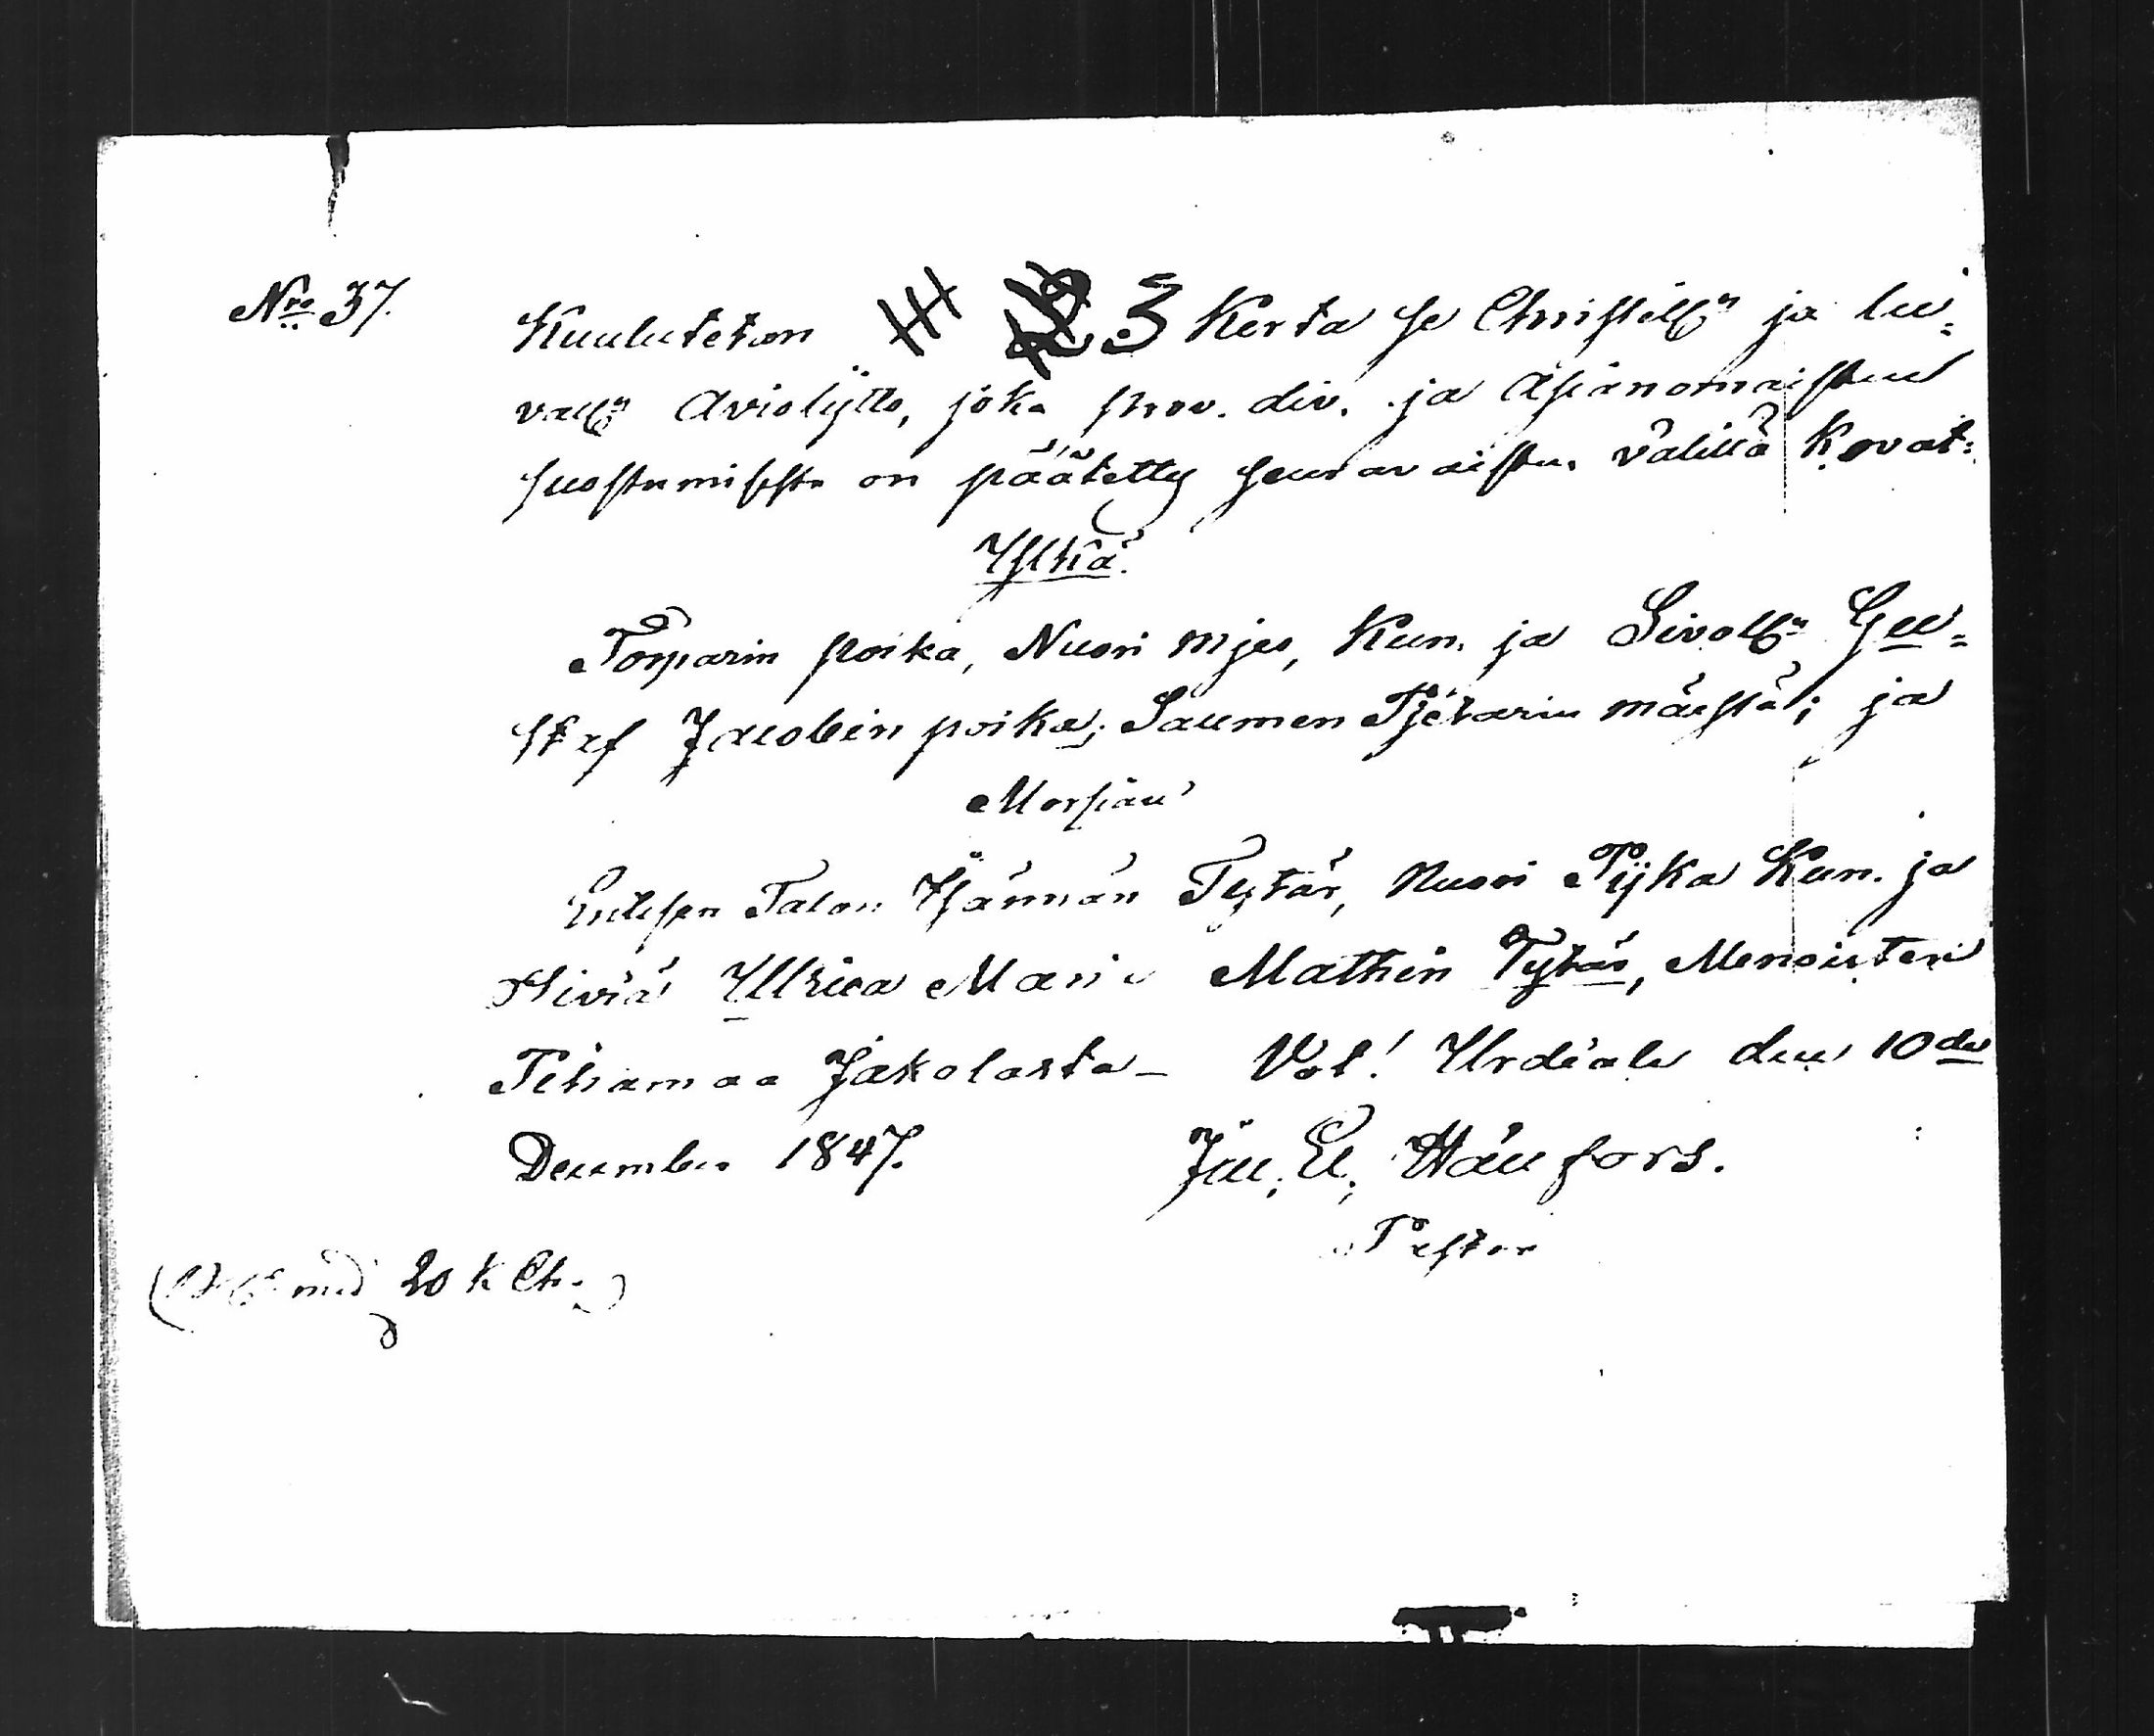 Nro 37.
Kuulutetan 3 Kerta se Christill:n ja lu=
vall:n Aviolijtto, joka prov. div. ja Asianomaisten
suostumisesta on päätetty seuravaisten välillä Kovat:
Ylkä.
Torparin poika, Nuori mjes, Kun. ja Sivoll:n Gu=
staf Jacobin poika, Saumen mäestä; ja
Morsian
Entisen Talon Isännän Tytär, Nuori Pijka Kun. ja
Sivia Ulrica Maria Mathin Tytär, Menoisten
Pehamaa Jakolasta – Urdiala den 10de
December 1847.
Pastor
20 k